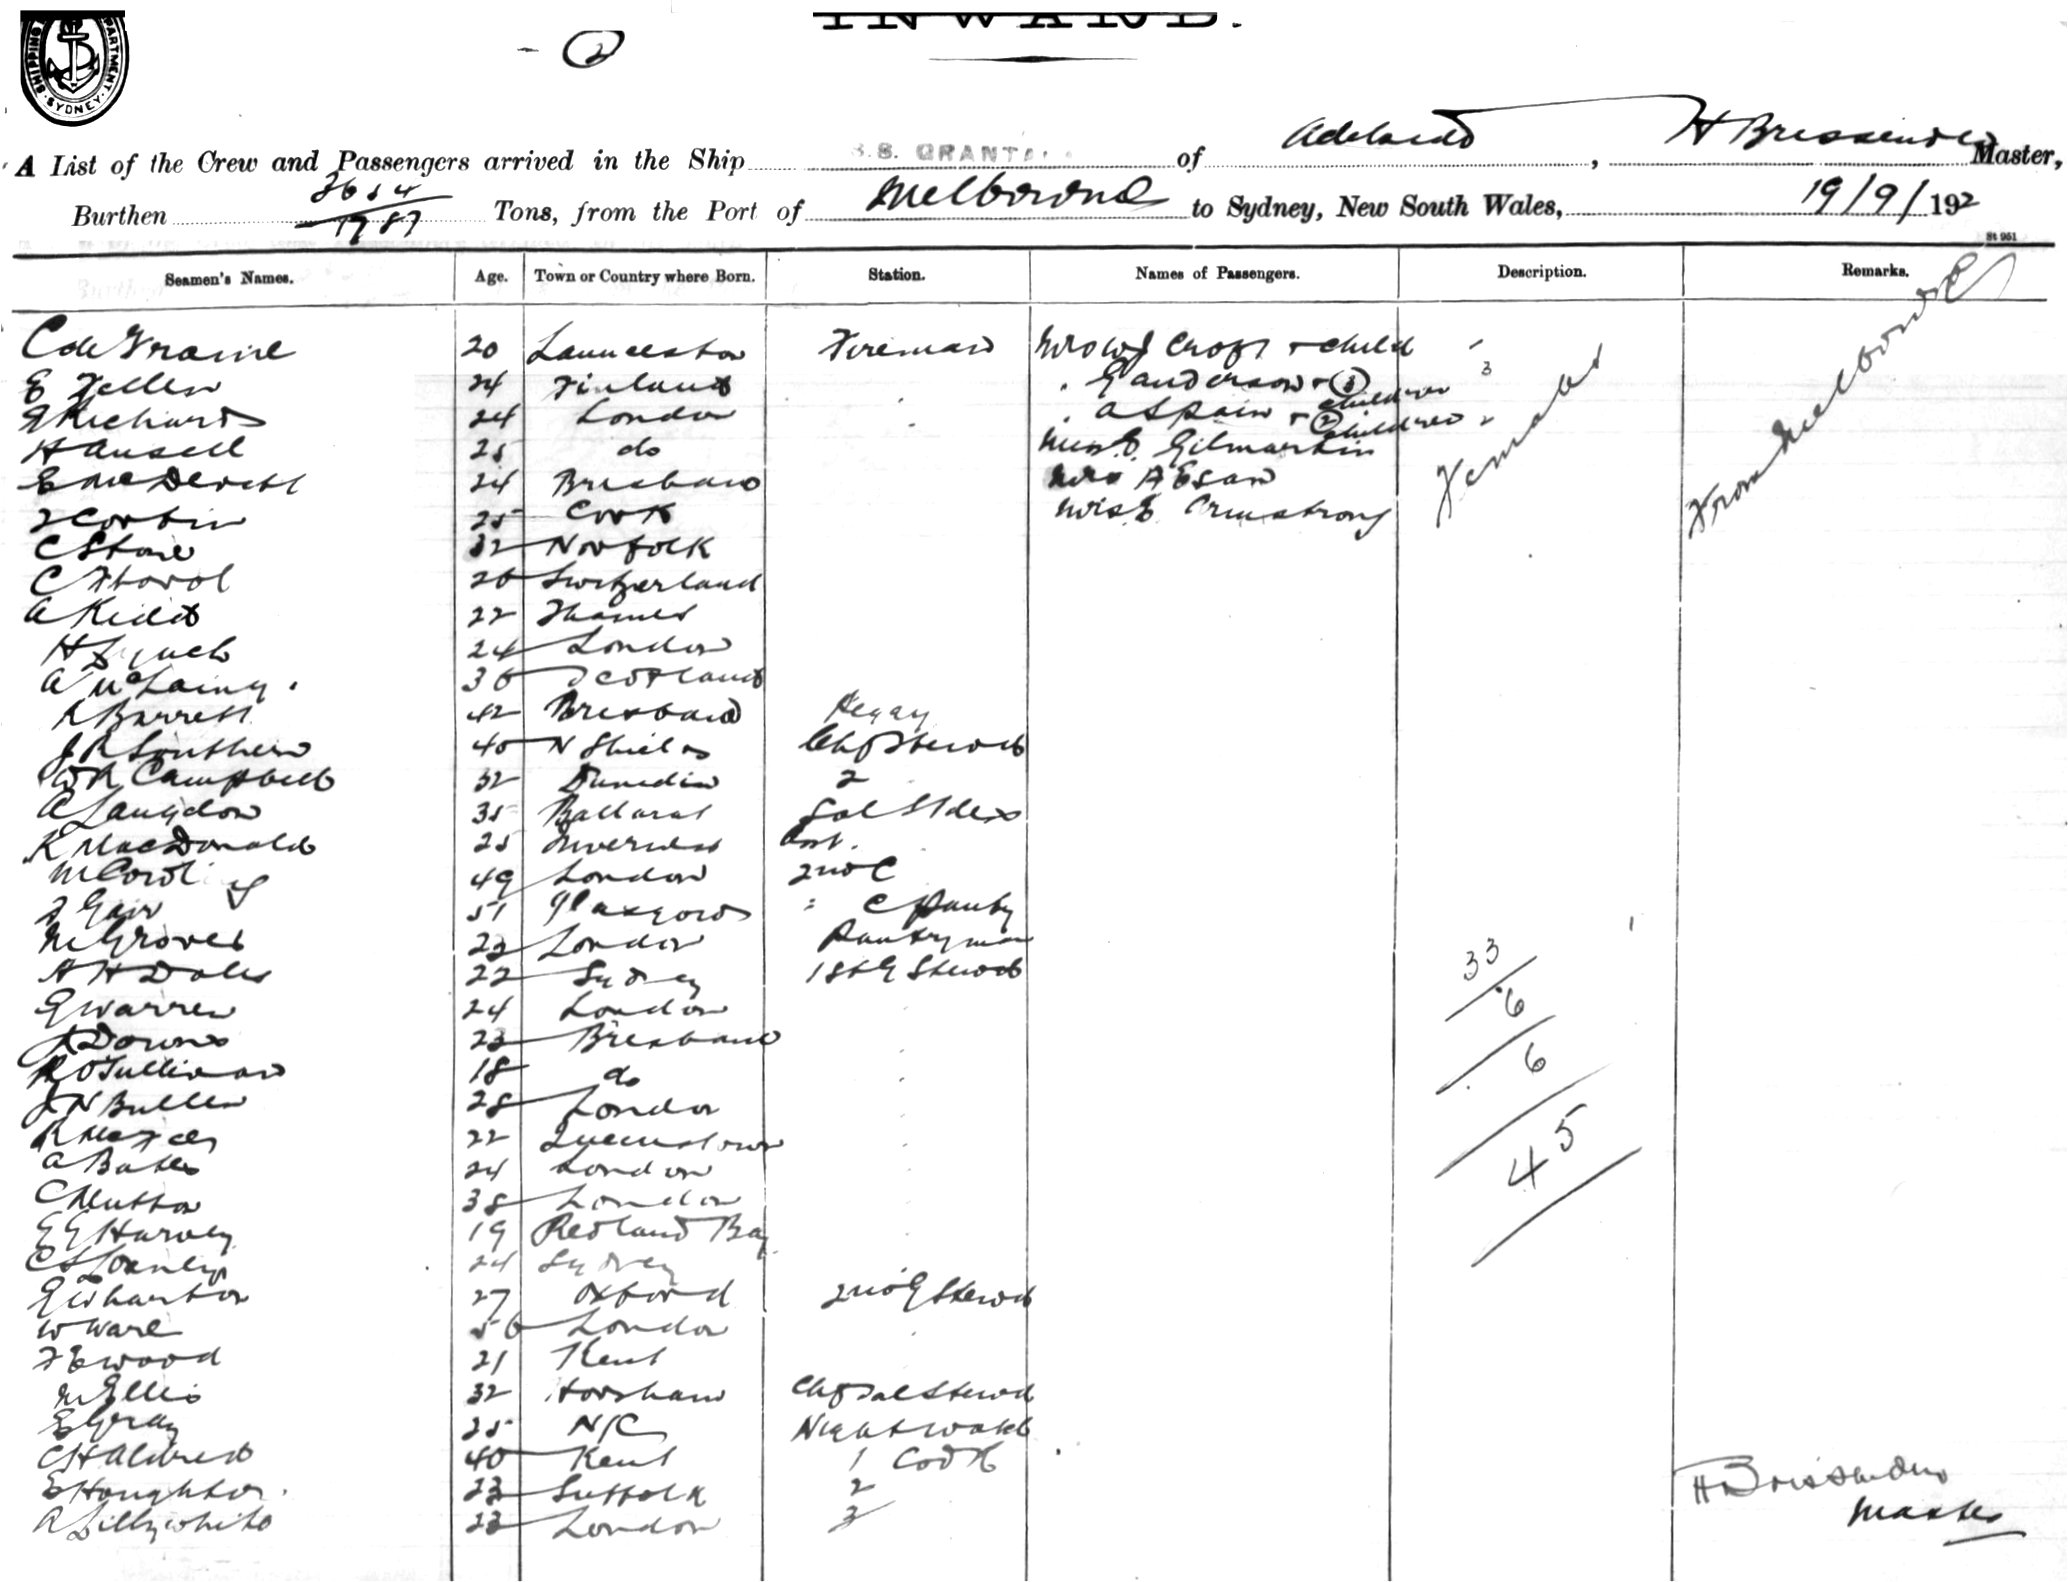 INWARD.
- 2
SHIPPING DEPARTMENT. SYDNEY.
A List of the Crew and Passengers arrived in the Ship S.S. GRANTALA of Adelaide, H Brissenden Master,
Burthen 3654 / 1787 Tons, from the Port of Melbourne to Sydney, New South Wales, 19/9/192
St 951
Seamen's Names. Age. Town or Country where Born. Station. Names of Passengers. Description. Remarks.
C de Fraine 20 Launceston Fireman Mrs W J Croft + child
E Fellen 24 Finland " G Anderson + (3) children 3
Richards 24 London " A Spain + (2) children 2
H Ansell 25 do Miss E. Gilmartin
E McDevitt 24 Brisbane Mrs A Esaw
Corbin 25 Cork Miss E Armstrong
Females
From Melbourne
C Stone 32 Norfolk
C 26 Switzerland
A Kidd 22 Thames
H Lynch 24 London
A McLainy. 36 Scotland
R Barrett 42 Brisbane
J R Southern 40 N Shields Chf Steward
W R Campbell 32 Dunedin 2
A Langdon 35 Ballarat
K MacDonald 25 Inverness
M 49 London 2nd C
Gair 51 Glasgow " C Pantry
M Groves 23 London Pantryman
A H Dales 22 Sydney 1st G Steward
G Warren 24 London
R Downs 23 Brisbane
R O'Sullivan 18 do
J N Bullen 28 London
R 22 Queenstown
A Bates 24 London
C Mutton 38 London
E G Harvey 19 Redland Bay
C S 24 Sydney
G Wharton 27 Oxford 2nd G Steward
W Ware 56 London
F E Wood 21 Kent
M Ellis 32 Horsham Chf Sal Steward
E Gray 25 N/C Nightwatch
C H Aldred 40 Kent 1 Cook
E Houghton. 23 Suffolk 2
R Lillywhite 23 London 3
33
6
6
45
H Brissenden
Master